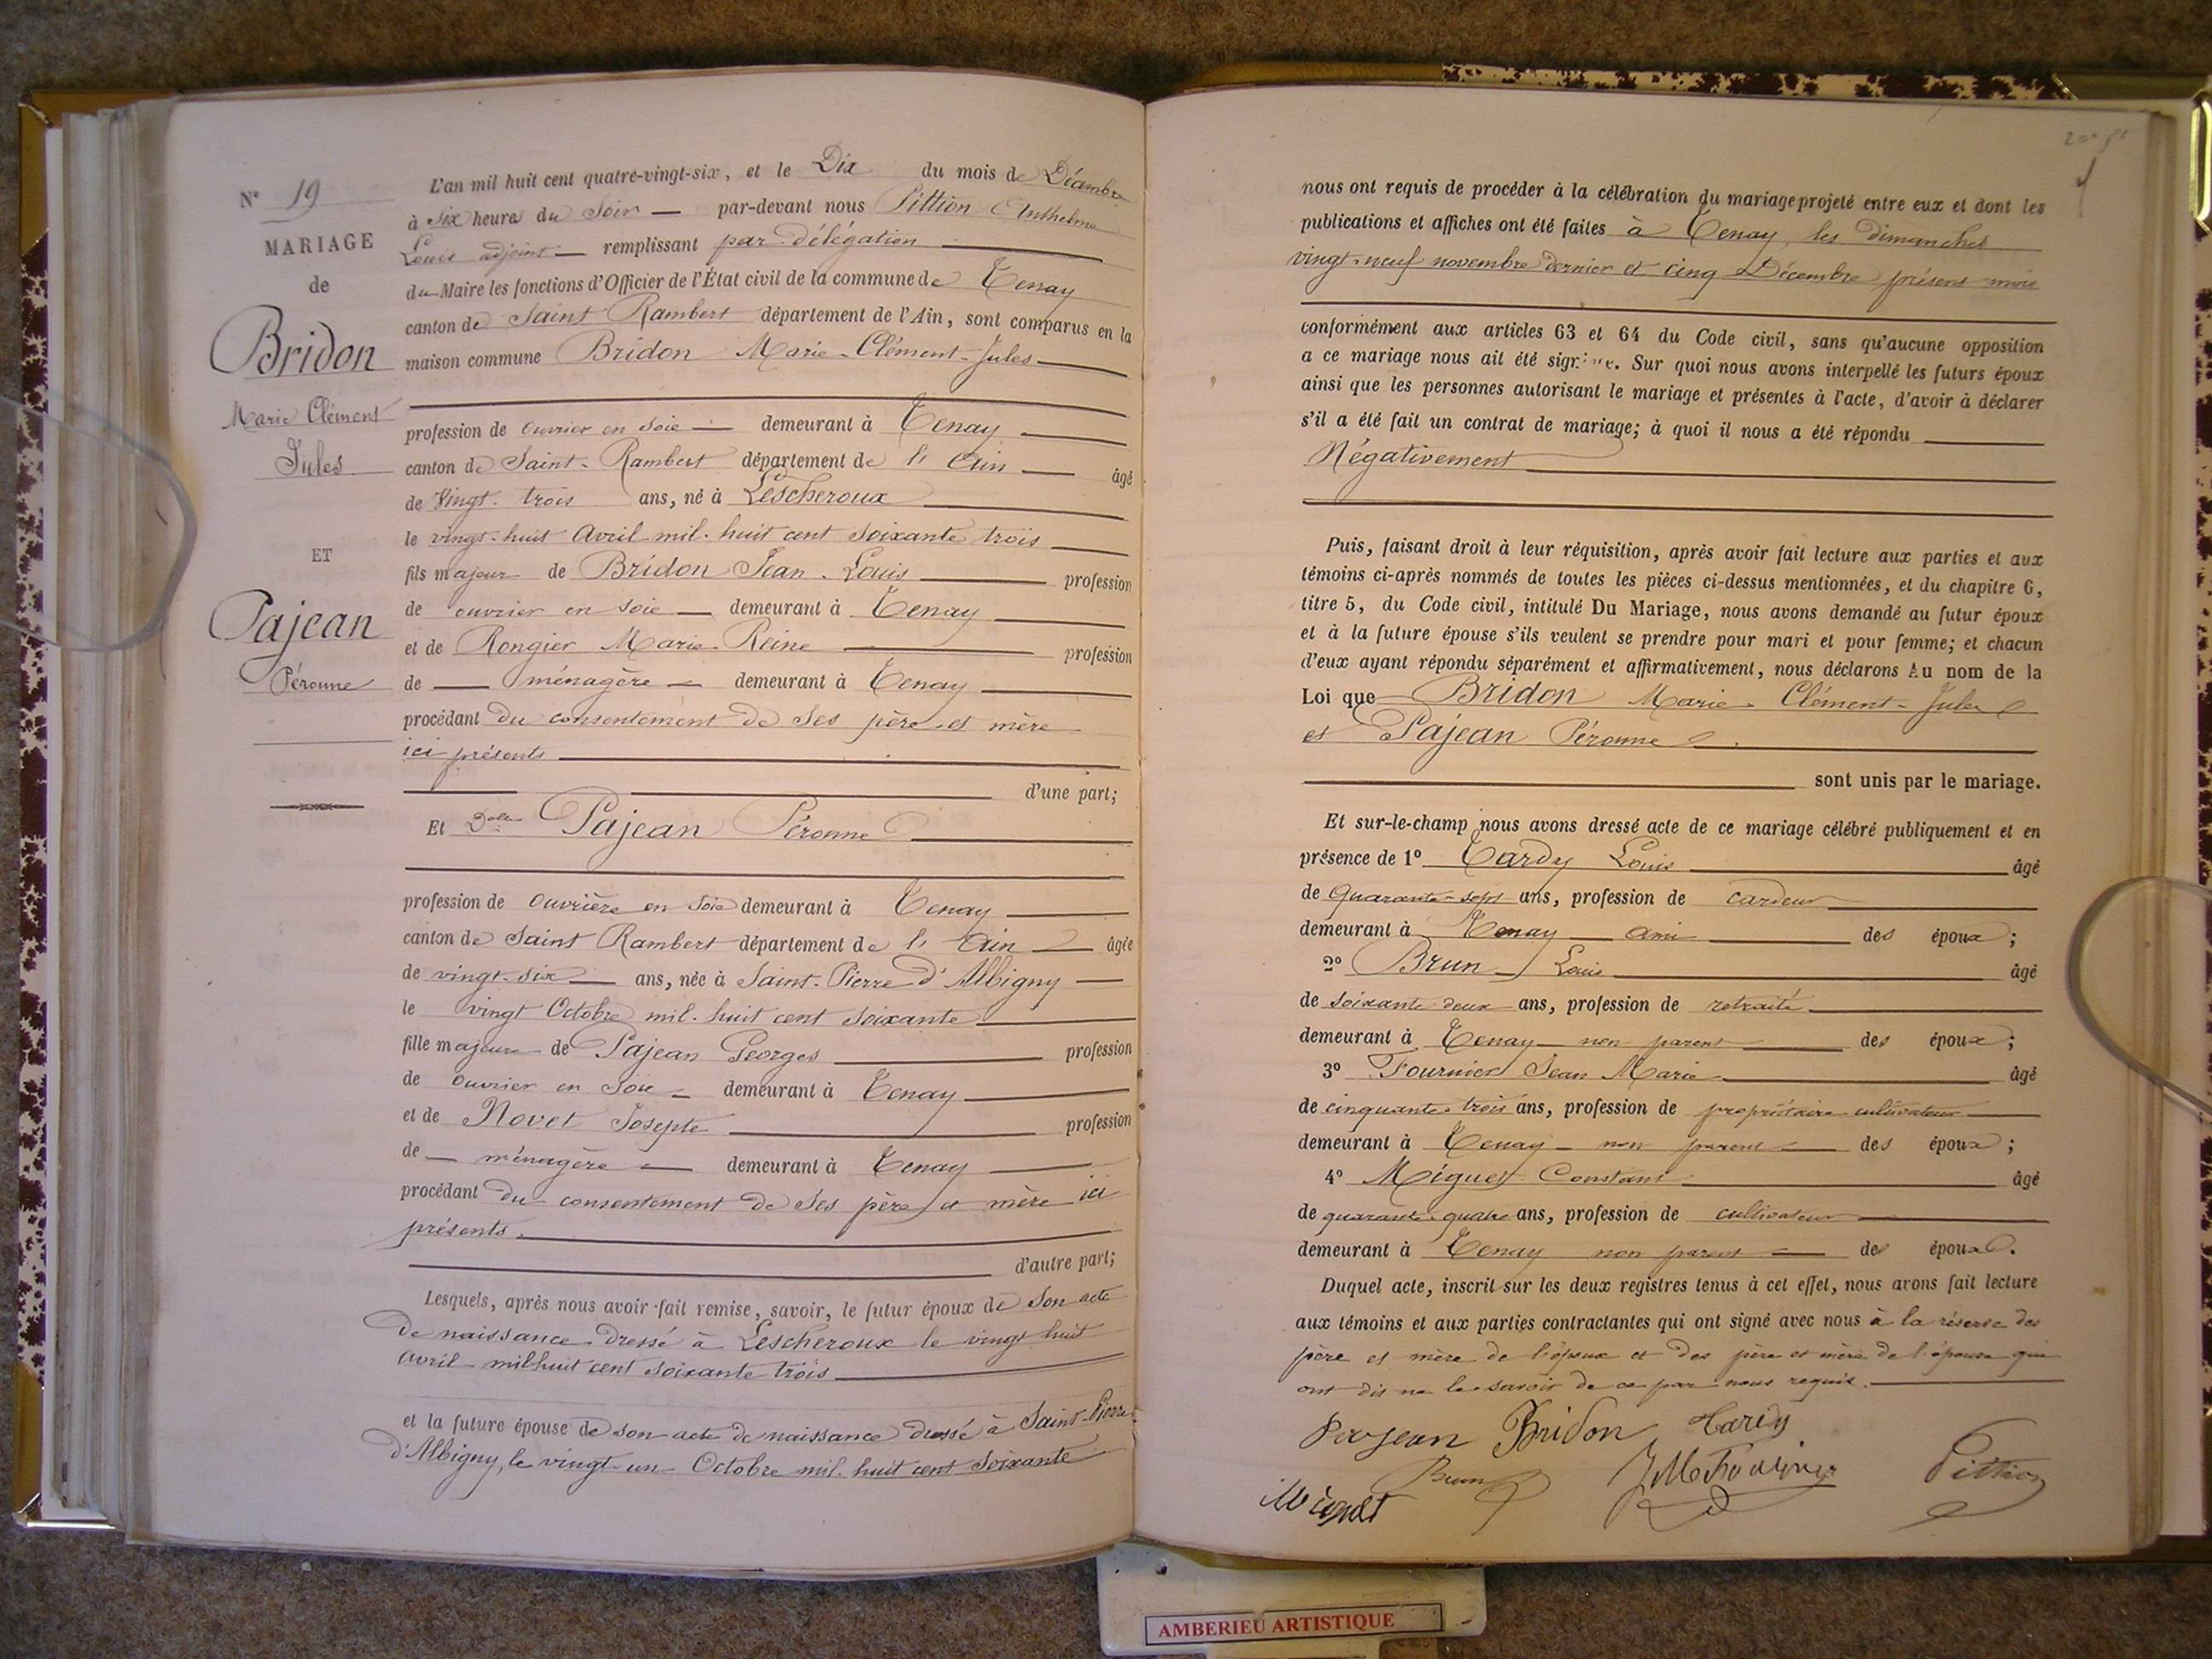 N° 19
MARIAGE
de
Bridon
Marie Clément
Jules
ET
Pajean
Péronne
L'an mil huit cent quatre-vingt-six, et le Dix du mois de Décembre
à six heures du soir — par-devant nous Pittion Anthelme
Louis adjoint — remplissant par délégation
du Maire les fonctions d'Officier de l'État civil de la commune de Tenay
canton de Saint Rambert département de l'Ain, sont comparus en la
maison commune Bridon Marie-Clément-Jules
profession de ouvrier en soie — demeurant à Tenay
canton de Saint-Rambert département de l'Ain — âgé
de vingt-trois ans, né à Lescheroux
le vingt-huit Avril mil-huit cent soixante trois
fils majeur de Bridon Jean-Louis profession
de ouvrier en soie — demeurant à Tenay
et de Rongier Marie-Reine profession
de — ménagère — demeurant à Tenay
procédant du consentement de ses père et mère
ici présents
d'une part;
Et Dlle Pajean Péronne
profession de ouvrière en soie demeurant à Tenay
canton de Saint Rambert département de l'Ain âgée
de vingt-six — ans, née à Saint-Pierre d'Albigny —
le vingt Octobre mil-huit cent soixante
fille majeure de Pajean Georges profession
de ouvrier en soie — demeurant à Tenay
et de Novet Josepte profession
de — ménagère — demeurant à Tenay
procédant du consentement de ses père et mère ici
présents.
d'autre part;
Lesquels, après nous avoir fait remise, savoir, le futur époux de son acte
de naissance dressé à Lescheroux le vingt huit
avril mil huit cent soixante trois
et la future épouse de son acte de naissance dressé à Saint-Pierre
d'Albigny, le vingt-un Octobre mil-huit cent soixante
nous ont requis de procéder à la célébration du mariage projeté entre eux et dont les
publications et affiches ont été faites à Tenay, les dimanches
vingt-neuf novembre dernier et cinq Décembre présent mois
conformément aux articles 63 et 64 du Code civil, sans qu'aucune opposition
a ce mariage nous ait été signifiée. Sur quoi nous avons interpellé les futurs époux
ainsi que les personnes autorisant le mariage et présentes à l'acte, d'avoir à déclarer
s'il a été fait un contrat de mariage; à quoi il nous a été répondu
Négativement
Puis, faisant droit à leur réquisition, après avoir fait lecture aux parties et aux
témoins ci-après nommés de toutes les pièces ci-dessus mentionnées, et du chapitre 6,
titre 5, du Code civil, intitulé Du Mariage, nous avons demandé au futur époux
et à la future épouse s'ils veulent se prendre pour mari et pour femme; et chacun
d'eux ayant répondu séparément et affirmativement, nous déclarons Au nom de la
Loi que Bridon Marie-Clément-Jules
et Pajean Péronne
sont unis par le mariage.
Et sur-le-champ nous avons dressé acte de ce mariage célébré publiquement et en
présence de 1° Tardy Louis âgé
de quarante-sept ans, profession de cardeur
demeurant à Tenay — ami des époux;
2° Brun Louis âgé
de soixante-deux ans, profession de retraité
demeurant à Tenay — non parent des époux;
3° Fournier Jean Marie âgé
de cinquante-trois ans, profession de propriétaire cultivateur
demeurant à Tenay — non parent des époux;
4° Miguet Constant âgé
de quarante-quatre ans, profession de cultivateur
demeurant à Tenay non parent — des époux.
Duquel acte, inscrit sur les deux registres tenus à cet effet, nous avons fait lecture
aux témoins et aux parties contractantes qui ont signé avec nous à la réserve des
père et mère de l'époux et des père et mère de l'épouse qui
ont dit ne le savoir de ce par nous requis.
Pajean Bridon Tardy
Brun JM Fournier Pittion
Miguet
AMBERIEU ARTISTIQUE